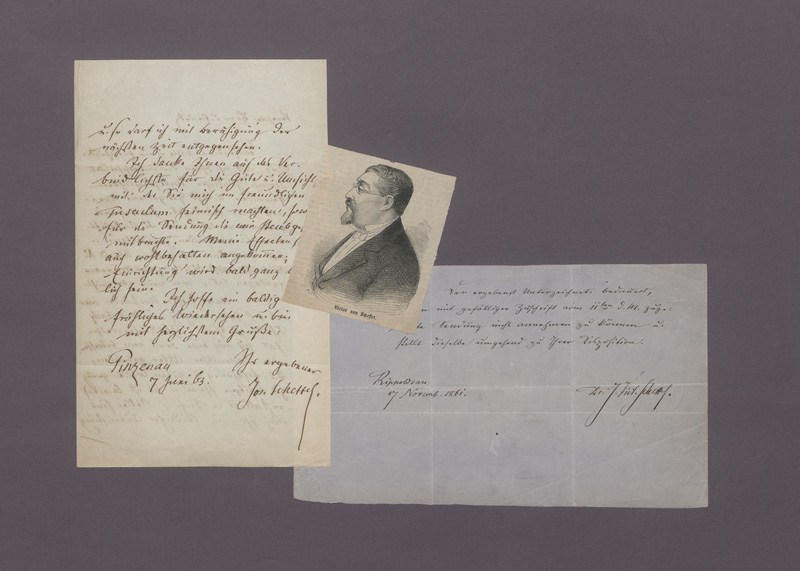 u. so darf ich mit Beruhigung der
nächsten Zeit entgegensehen.
Ich danke Ihnen auf das Ver-
bindlichste für die Güte u. Umsicht
mit der Sie mich im freundlichen
Tusculum heimisch machten, sowie
für die Sendung die
mitbrachte. Meine Effecten
auch wohlbehalten angekommen;
Einrichtung wird bald ganz
lich sein.
Ich hoffe ein baldig
fröhliches Wiedersehen u. bin
mit herzlichstem Gruße
Pinzenau
7 Juni 63.
Ihr ergebener
Jos. Scheffel.
Victor von Scheffel.
Der ergebenst Unterzeichnete bedauert,
mit gefälliger Zuschrift vom 11ten d. M. zuge-
Sendung nicht annehmen zu können u.
stellt dieselbe umgehend zu Ihrer Disposition.
Rippoldsau
17 Novemb. 1861.
Dr. J. Vict. Scheffel.